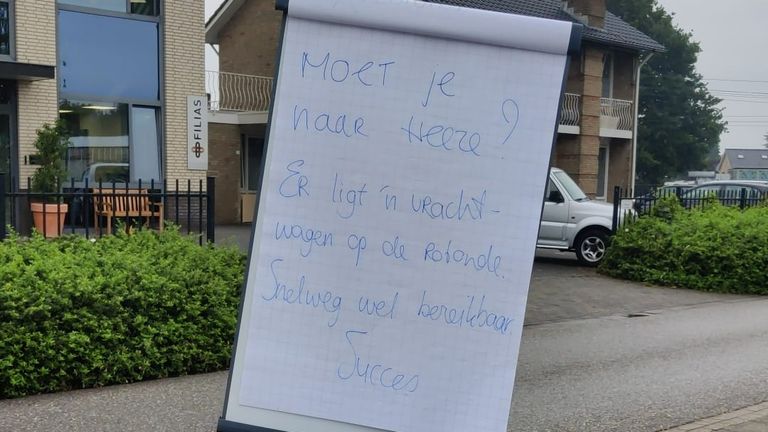 Moet je
naar Heeze?
Er ligt 'n vracht-
wagen op de rotonde.
Snelweg wel bereikbaar
Succes
FILIAS